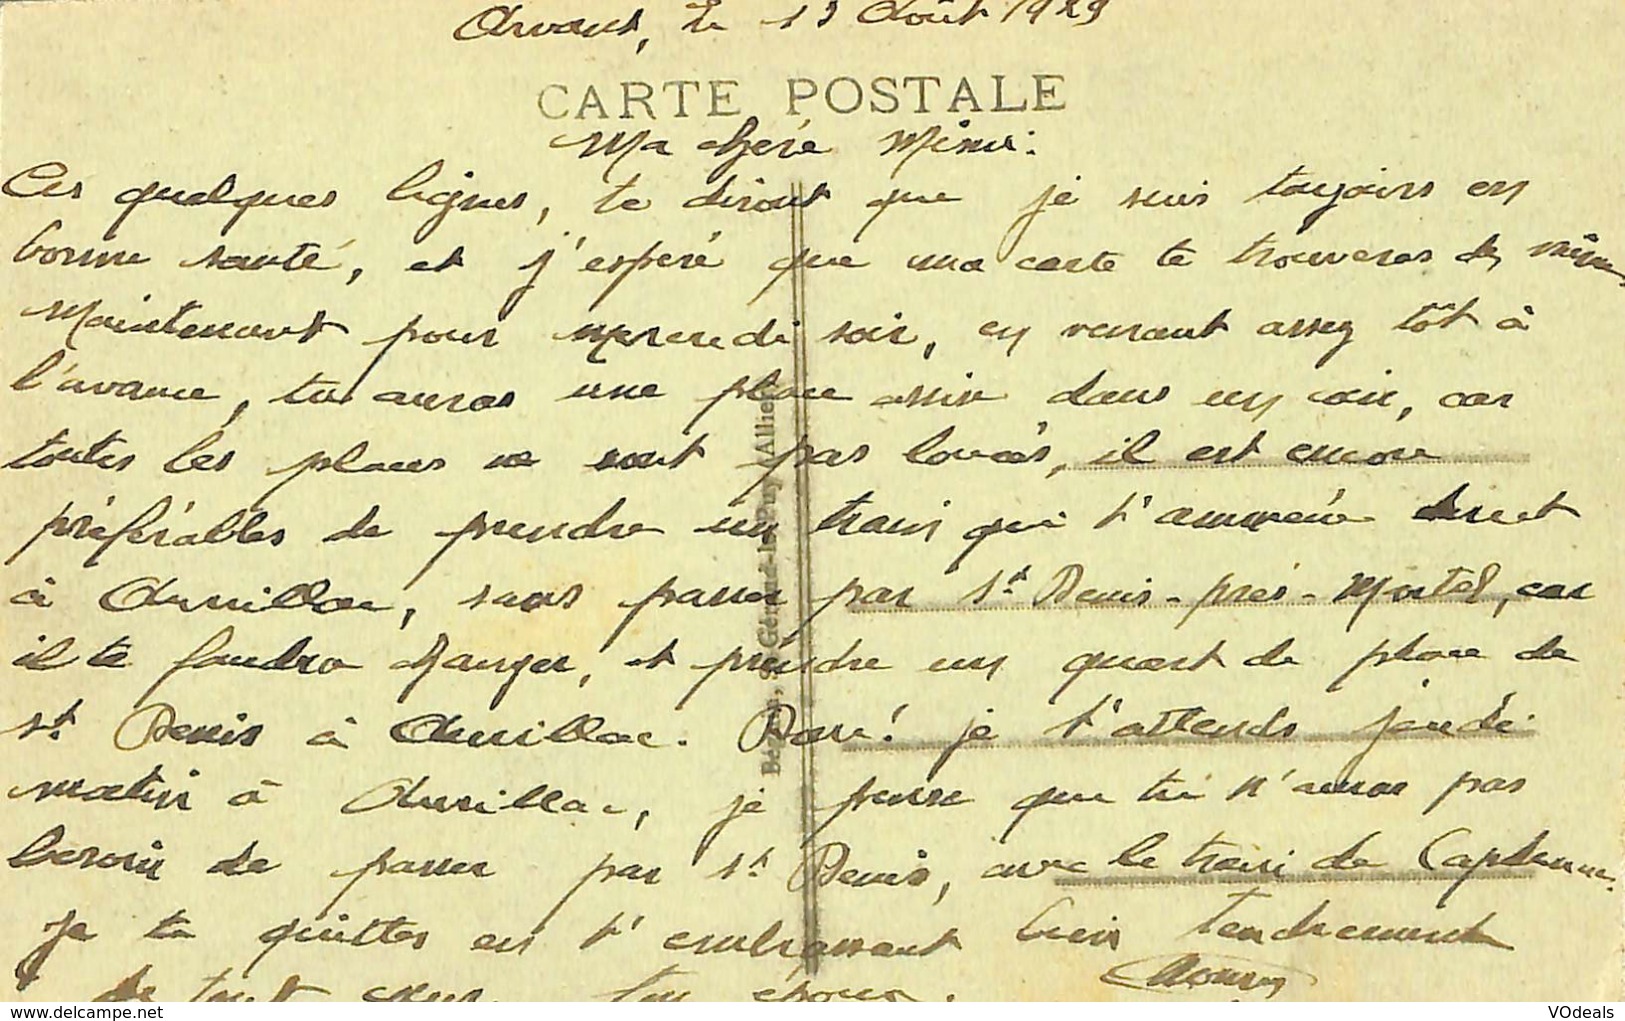 Arvant, le 13 Août 1929
CARTE POSTALE
Ma chère Mimi:
Ces quelques lignes, te diront que je suis toujours en
bonne santé, et j'espère que ma carte te trouveras de même
Maintenant pour mercredi soir, en venant assez tôt à
l'avance, tu auras une place assise dans un coin, car
toutes les places ne sont pas louées, il est encore
préférables de prendre un train qui t'ammène direct
à Aurillac, sans passer par St Denis-près-Martel, car
il te faudra changer, et prendre un quart de place de
St Denis à Aurillac. Donc! je t'attends jeudi
matin à Aurillac, je pense que tu n'auras pas
besoin de passer par St Denis, avec le train de Capdenac.
Je te quittes en t'embrassant bien tendrement
de tout cœur. Ton époux.
St Gérand-le-Puy (Allier)
VOdeals